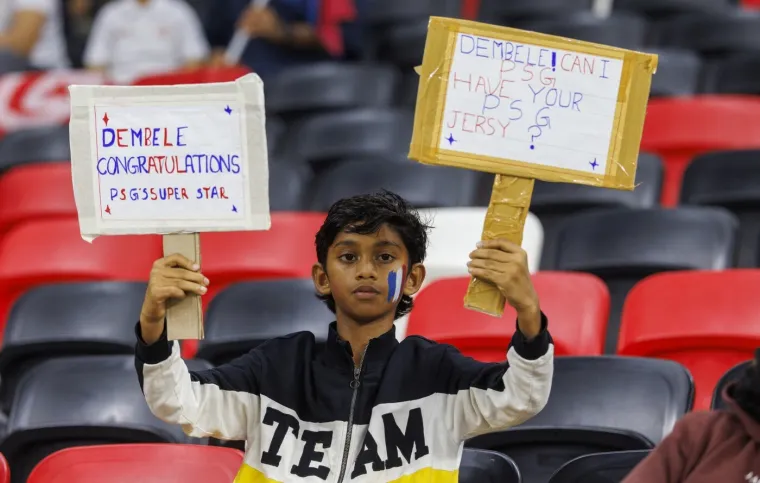 DEMBELE
CONGRATULATIONS
PSG'S SUPER STAR
DEMBELE! CAN I
PSG
HAVE YOUR
PSG
JERSY ?
TEAM